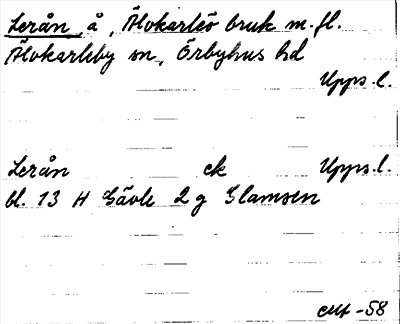 Lerån, å, Älvkarleö bruk m.fl.
Älvkarleby sn, Örbyhus hd
Upps.l.
Lerån ek Upps.l.
bl. 13 H Gävle 2 g Glamsen
-58